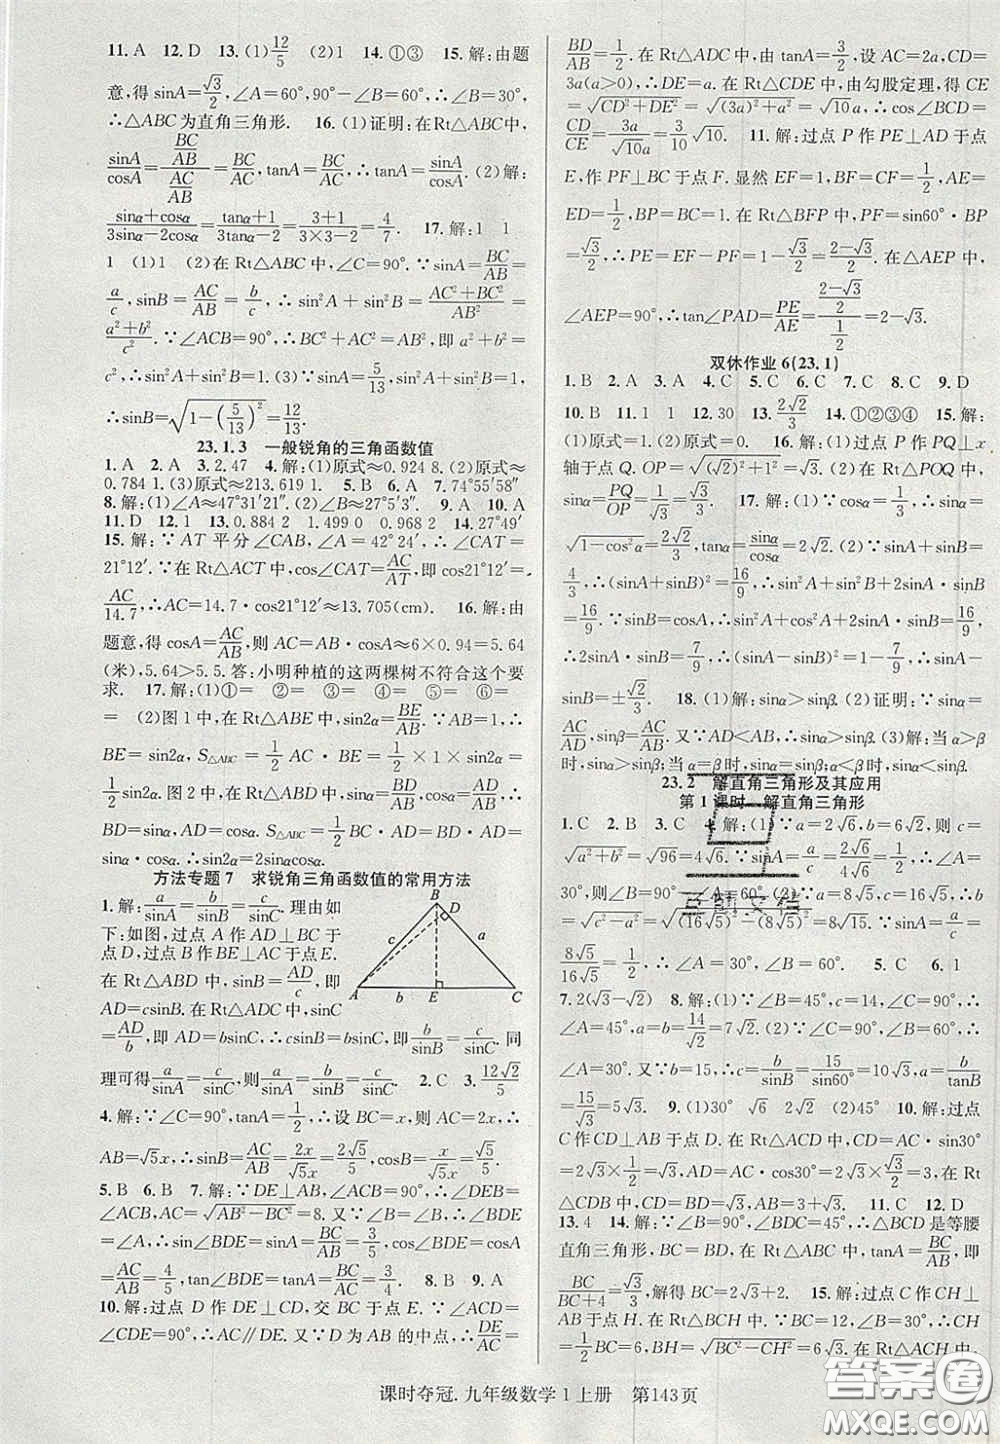 11. A　12. D　13. (1)12/5　(2)1　14. ①③　15. 解:由题
意,得 sinA=√3/2,∠A=60°,90°-∠B=60°,∴∠B=30°,
∴△ABC 为直角三角形.　16. (1)证明:在Rt△ABC中,
sinA/cosA=(BC/AB)/(AC/AB)=BC/AC,tanA=BC/AC,∴tanA=sinA/cosA. (2)解:
(sinα+cosα)/(3sinα-2cosα)=(tanα+1)/(3tanα-2)=(3+1)/(3×3-2)=4/7.　17. 解:1　1
1　(1)1　(2)在Rt△ABC 中,∠C=90°. ∵sinA=BC/AB=
a/c,sinB=AC/AB=b/c,∴sin²A+sin²B=(AC²+BC²)/AB²=
(a²+b²)/c². ∵∠C=90°,∴BC²+AC²=AB²,即 a²+b²=
c²,∴sin²A+sin²B=1. (3)∵sinA=5/13,sin²A+sin²B=1,
∴sinB=√(1-(5/13)²)=12/13.
23. 1. 3　一般锐角的三角函数值
1. A　2. A　3. 2. 47　4. 解:(1)原式≈0. 924 8. (2)原式≈
0. 784 1. (3)原式≈213. 619 1.　5. B　6. A　7. 74°55′58″
8. 解:(1)∠A≈47°31′21″. (2)∠B≈27°5′3″.　9. A　10. A
11. D　12. 1　13. 0. 884 2　1. 499 0　0. 968 2　14. 27°49′
15. 解:∵AT 平分∠CAB,∠A=42°24′,∴∠CAT=
21°12′. ∵在Rt△ACT 中,cos∠CAT=AC/AT,即cos21°12′=
AC/14.7,∴AC=14. 7·cos21°12′≈13. 705(cm).　16. 解:由
题意,得 cosA=AC/AB,则 AC=AB·cosA≈6×0. 94=5. 64
(米),5. 64>5. 5. 答:小明种植的这两棵树不符合这个要
求.　17. 解:(1)①=　②=　③=　④=　⑤=　⑥=
=　(2)图 1 中,在Rt△ABE 中,sin2α=BE/AB. ∵AB=1,∴
BE=sin2α,S△ABC=1/2 AC·BE=1/2×1×sin2α=
1/2 sin2α. 图 2 中,在Rt△ABD 中,sinα=BD/AB. ∵AB=1,∴
BD=sinα,AD=cosα. ∴S△ABC=1/2 BC·AD=1/2×2BD·AD=
sinα·cosα. ∴sin2α=2sinαcosα.
方法专题 7　求锐角三角函数值的常用方法
1. 解:a/sinA=b/sinB=c/sinC. 理由如
下:如图,过点 A 作 AD⊥BC 于
点 D,过点 B 作 BE⊥AC 于点 E.
在Rt△ABD 中,sinB=AD/c,即
AD=csinB,在Rt△ADC中,sinC
=AD/b,即 AD=bsinC,∴csinB=bsinC,即b/sinB=c/sinC. 同
理可得a/sinA=c/sinC,则a/sinA=b/sinB=c/sinC.　2. C　3. 12√2/5
4. 解:∵∠C=90°,tanA=1/2,∴设 BC=x,则 AC=2x,∴
AB=√5x,∴sinB=AC/AB=2x/√5x=2√5/5,cosB=BC/AB=x/√5x=√5/5.
5. B　6. B　7. 解:∵DE⊥AB,∠ACB=90°,∴∠DEB=
∠ACB=90°,AC=√(AB²-BC²)=8. 又∵∠B=∠B,∴∠BDE=
∠A,∴sin∠BDE=sinA=BC/AB=3/5,cos∠BDE=cosA=
AC/AB=4/5,tan∠BDE=tanA=BC/AC=3/4.　8. B　9. A
10. 解:过点 D 作 DE⊥CD,交 BC 于点 E. ∵∠ACD=
∠CDE=90°,∴AC∥DE. 又∵D 为AB 的中点,∴DE/AC=
B
D
c
a
A
b
E
C
BD/AB=1/2. 在Rt△ADC 中,由 tanA=3/2,设 AC=2a,CD=
3a(a>0),∴DE=a. 在Rt△CDE 中,由勾股定理,得 CE
=√(CD²+DE²)=√((3a)²+a²)=√10a,∴cos∠BCD=
CD/CE=3a/√10a=3/10√10.　11. 解:过点 P 作 PE⊥AD 于点
E,作 PF⊥BC 于点 F. 显然 EF=1,CF=1/2,AE=
ED=1/2,BP=BC=1. 在Rt△BFP 中,PF=sin60°·BP
=√3/2,∴PE=EF-PF=1-√3/2=(2-√3)/2. 在△AEP 中,
∠AEP=90°,∴tan∠PAD=PE/AE=((2-√3)/2)/(1/2)=2-√3.
双休作业 6(23. 1)
1. B　2. D　3. A　4. C　5. C　6. C　7. C　8. C　9. D
10. B　11. 1　12. 30　13. 2√2/3　14. ①②③④　15. 解:
(1)原式=√2. (2)原式=0.　16. 解:(1)过点 P 作PQ⊥x
轴于点 Q. OP=√((√2)²+1²)=√3. (2)在Rt△POQ 中,
sinα=PQ/OP=1/√3=√3/3.　17. 解:(1)∵cosα=1/3,∴sinα=
√(1-cos²α)=2√2/3,tanα=sinα/cosα=2√2. (2)∵sinA+sinB=
4/3,∴(sinA+sinB)²=16/9,∴sin²A+sin²B+2sinA·
sinB=16/9. ∵sin²A+cos²A=1,∴sin²A+sin²B=1,
∴2sinA·sinB=7/9,∴(sinA-sinB)²=1-7/9,∴sinA-
sinB=±√2/3.　18. (1)解:sinα>sinβ. (2)证明:∵sinα=
AC/AD,sinβ=AC/AB. 又∵AD<AB,∴sinα>sinβ. (3)解:当 α>β
时,sinα>sinβ;当 α=β时,sinα=sinβ;当α<β时,sinα<sinβ.
23. 2　解直角三角形及其应用
第 1 课时　解直角三角形
1. C　2. B　3. C　4. 解:(1)∵a=2√6,b=6√2,则 c=
=√96=4√6. ∵sinA=a/c=2√6/4√6=
1/2,则∠A=30°,∠B=90°-∠A=60°. (2)∵a=8√5,c=16√5,∴
b=√(c²-a²)=√((16√5)²-(8√5)²)=8√15. ∵sinA=a/c=
8√5/16√5=1/2,∴∠A=30°,∴∠B=60°.　5. C　6. 1
7. 2(√3-√2)　8. 解:(1)∵∠B=45°,c=14,∠C=90°,∴
∠A=45°,∴a=b=14/√2=7√2. (2)∵∠B=60°,∠C=90°,∴
∠A=30°. 又∵b=15,∴c=b/sinB=15/sin60°=10√3,a=b/tanB
=15/√3=5√3.　9. (1)30°　√6　√2　(2)45°　10. 解:过点
C作CD⊥AB 于点 D. 在Rt△ACD 中,CD=AC·sin30°
=2√3×1/2=√3,AD=AC·cos30°=2√3×√3/2=3. 在Rt
△CDB 中,∵∠B=45°,∴BD=CD=√3,AB=3+√3.　11. C　12. D
13. 4　14. 解:∵∠B=90°,∠BDC=45°,∴△BCD 是等腰
直角三角形,BC=BD. 在Rt△ABC 中,∵tanA=BC/AB,即
BC/(BC+4)=√3/3,解得 BC=2(√3+1).　15. 解:过点 C作CH⊥
AB 于点 H. 在Rt△BCH 中,∵BC=12,∠B=30°,∴CH=
1/2BC=6,BH=√(BC²-CH²)=6√3. 在Rt△ACH 中,
课时夺冠. 九年级数学 1 上册　第143页
答案圈
MXQE.COM